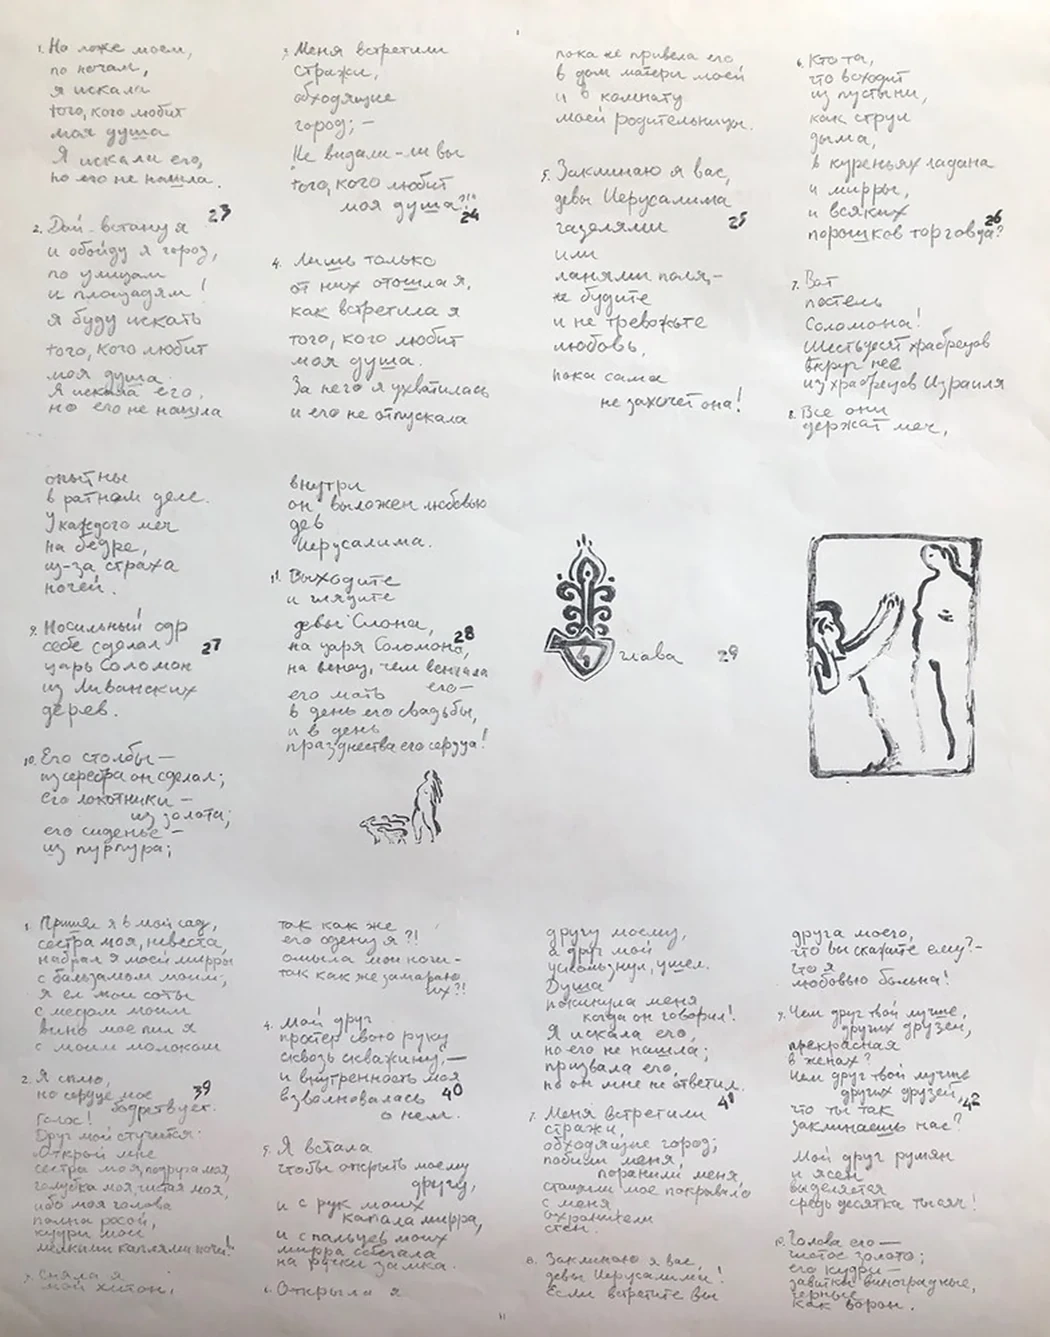 1. На ложе моем,
по ночам,
я искала
того, кого любит
моя душа
Я искала его,
но его не нашла.
23
2. Дай-встану я
и обойду я город,
по улицам
и площадям!
я буду искать
того, кого любит
моя душа.
Я искала его,
но его не нашла
3. Меня встретили
стражи,
обходящие
город; –
Не видали-ли вы
того, кого любит
моя душа?!"
24
4. Лишь только
от них отошла я,
как встретила я
того, кого любит
моя душа.
За него я ухватилась
и его не отпускала
пока не привела его
в дом матери моей
и в комнату
моей родительницы.
5. Заклинаю я вас,
девы Иерусалима
газелями
25
или
ланями поля, –
не будите
и не тревожьте
любовь,
пока сама
не захочет она!
6. Кто та,
что восходит
из пустыни,
как струи
дыма,
в куреньях ладана
и мирры,
и всяких
26
порошков торговца?
7. Вот
постель
Соломона!
Шестьдесят храбрецов
вкруг нее
из храбрецов Израиля
8. Все они
держат меч,
опытны
в ратном деле.
У каждого меч
на бедре,
из-за страха
ночей.
9. Носильный одр
себе сделал
27
царь Соломон
из Ливанских
дерев.
10. Его столбы –
из серебра он сделал;
его локотники –
из золота;
его сиденье –
из пурпура;
внутри
он выложен любовью
дев
Иерусалима.
11. Выходите
и глядите
девы Сиона,
28
на царя Соломона,
на венец, чем венчала
его мать его –
в день его свадьбы,
и в день
празднества его сердца!
4 глава 29
1. Пришел я в мой сад,
сестра моя, невеста,
набрал я моей мирры
с бальзамом моим;
я ел мои соты
с медом моим
вино мое пил я
с моим молоком
2. Я сплю,
39
но сердце мое
бодрствует.
Голос!
Друг мой стучится:
Открой мне
сестра моя, подруга моя,
голубка моя, чистая моя,
ибо моя голова
полна росой,
кудри мои
мелкими каплями ночи!
3. Сняла я
мой хитон,
так как же
его одену я?!
омыла мои ноги –
так как же замараю
их?!
4. Мой друг
простер свою руку
сквозь скважину, –
и внутренность моя
40
взволновалась
о нем.
5. Я встала
чтобы открыть моему
другу,
и с рук моих
капала мирра,
и с пальцев моих
мирра сбегала
на ручки замка.
6. Открыла я
другу моему,
а друг мой
ускользнул, ушел.
Душа
покинула меня
когда он говорил!
Я искала его,
но его не нашла;
призвала его,
но он мне не ответил.
41
7. Меня встретили
стражи,
обходящие город;
побили меня,
поранили меня,
стащили мое покрывало
с меня
охранители
стен.
8. Заклинаю я вас,
девы Иерусалима!
Если встретите вы
друга моего,
что вы скажите ему? –
что я
любовью больна!
9. Чем друг твой лучше,
других друзей,
прекрасная
в женах?
Чем друг твой лучше
других друзей,
42
что ты так
заклинаешь нас?
Мой друг румян
и ясен
выделяется
средь десятка тысяч!
Голова его –
чистое золото;
его кудри –
завитки виноградные,
черные
как ворон.